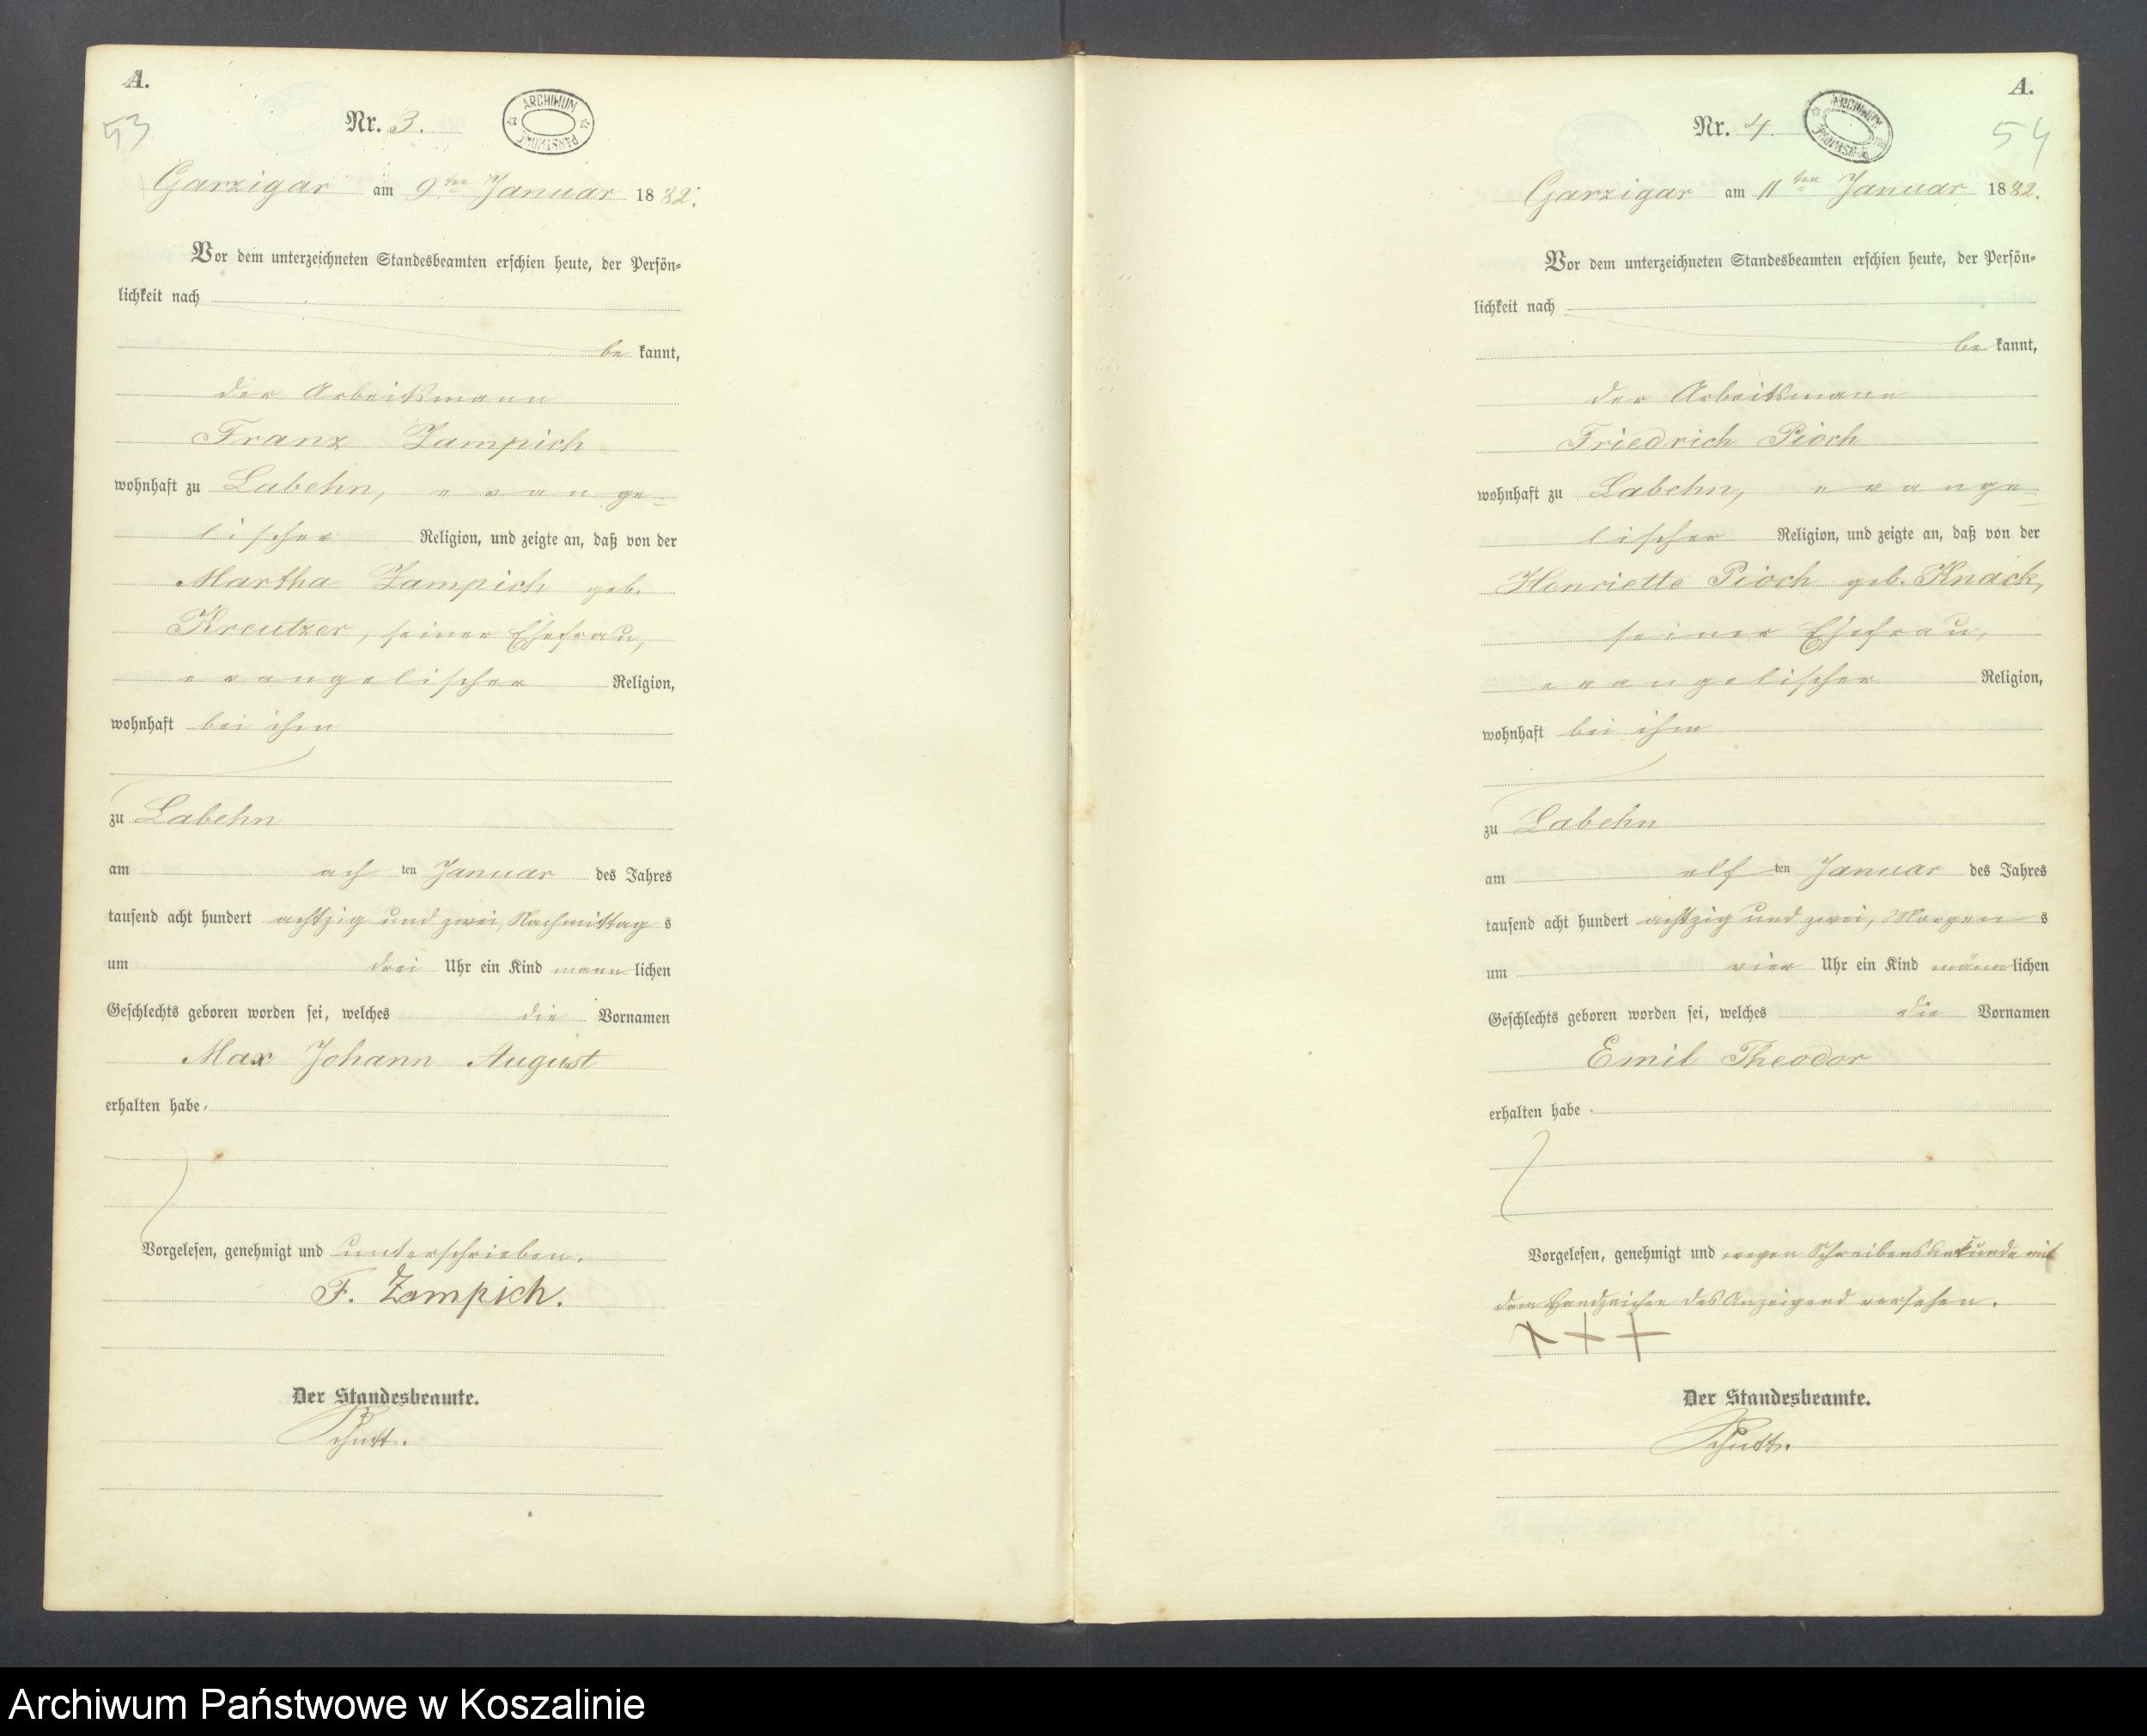 A.
53
Nr. 3.
ARCHIWUM
PAŃSTWOWE
Garzigar am 9ten Januar 1882.
Vor dem unterzeichneten Standesbeamten erschien heute, der Persön-
lichkeit nach
be kannt,
der Arbeitsmann
Franz Zampich
wohnhaft zu Labehn, evange-
lischer Religion, und zeigte an, daß von der
Martha Zampich geb.
Kreutzer, seiner Ehefrau,
evangelischer Religion,
wohnhaft bei ihm
zu Labehn
am ach ten Januar des Jahres
tausend acht hundert achtzig und zwei, Nachmittag s
um drei Uhr ein Kind männ lichen
Geschlechts geboren worden sei, welches die Vornamen
Max Johann August
erhalten habe.
Vorgelesen, genehmigt und unterschrieben.
F. Zampich.
Der Standesbeamte.
A.
54
Nr. 4.
ARCHIWUM
Garzigar am 11ten Januar 1882.
Vor dem unterzeichneten Standesbeamten erschien heute, der Persön-
lichkeit nach
be kannt,
der Arbeitsmann
Friedrich Pioch
wohnhaft zu Labehn, evange-
lischer Religion, und zeigte an, daß von der
Henriette Pioch geb. Knack,
seiner Ehefrau,
evangelischer Religion,
wohnhaft bei ihm
zu Labehn
am elf ten Januar des Jahres
tausend acht hundert achtzig und zwei, Morgen s
um vier Uhr ein Kind männ lichen
Geschlechts geboren worden sei, welches die Vornamen
Emil Theodor
erhalten habe.
Vorgelesen, genehmigt und wegen Schreibensunkunde mit
dem Handzeichen des Anzeigend versehen.
+++
Der Standesbeamte.
Archiwum Państwowe w Koszalinie